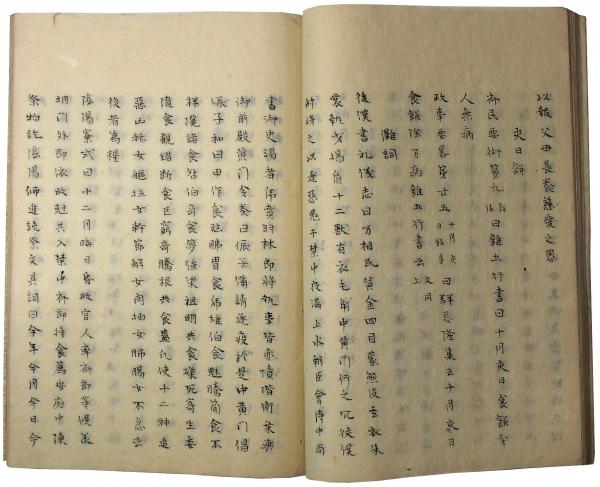 以報父母長養慈愛之恩
亥日餅
齊民要術第九 曰雜五行書曰十月亥日食餅令
人無病
政事要略第廿五 十月 曰群忌隆集云十月亥日
食餅除万病雜五行書云 文同上
儺詞
後漢書礼儀志曰方相氏黄金四目蒙熊皮玄衣朱
裳執戈揚盾十二獣有衣毛角中黄門行之冗従僕
射将之以逐悪鬼于禁中夜漏上水朝臣會侍中尚
書御史謁者虎賁羽林郎将執事皆赤幘陛衛乗輿
御前殿黄門令奏曰侲子備請逐疫於是中黄門倡
侲子和曰甲作食 胇胃食虎雄伯食魅騰簡食不
祥攬諸食咎伯奇食夢強梁祖明共食磔死寄生委
随食観錯断食巨窮奇騰根共食蠱凡使十二神追
悪凶赫女軀拉女幹節解女肉抽女肺腸女不急去
後者為糧
陰陽寮式曰十二月晦日昏時官人率斎郎等候承
明門外即依時尅共入禁中斎郎持食薦安庭中陳
祭物訖陰陽師進読祭文其詞曰今年今月今日今